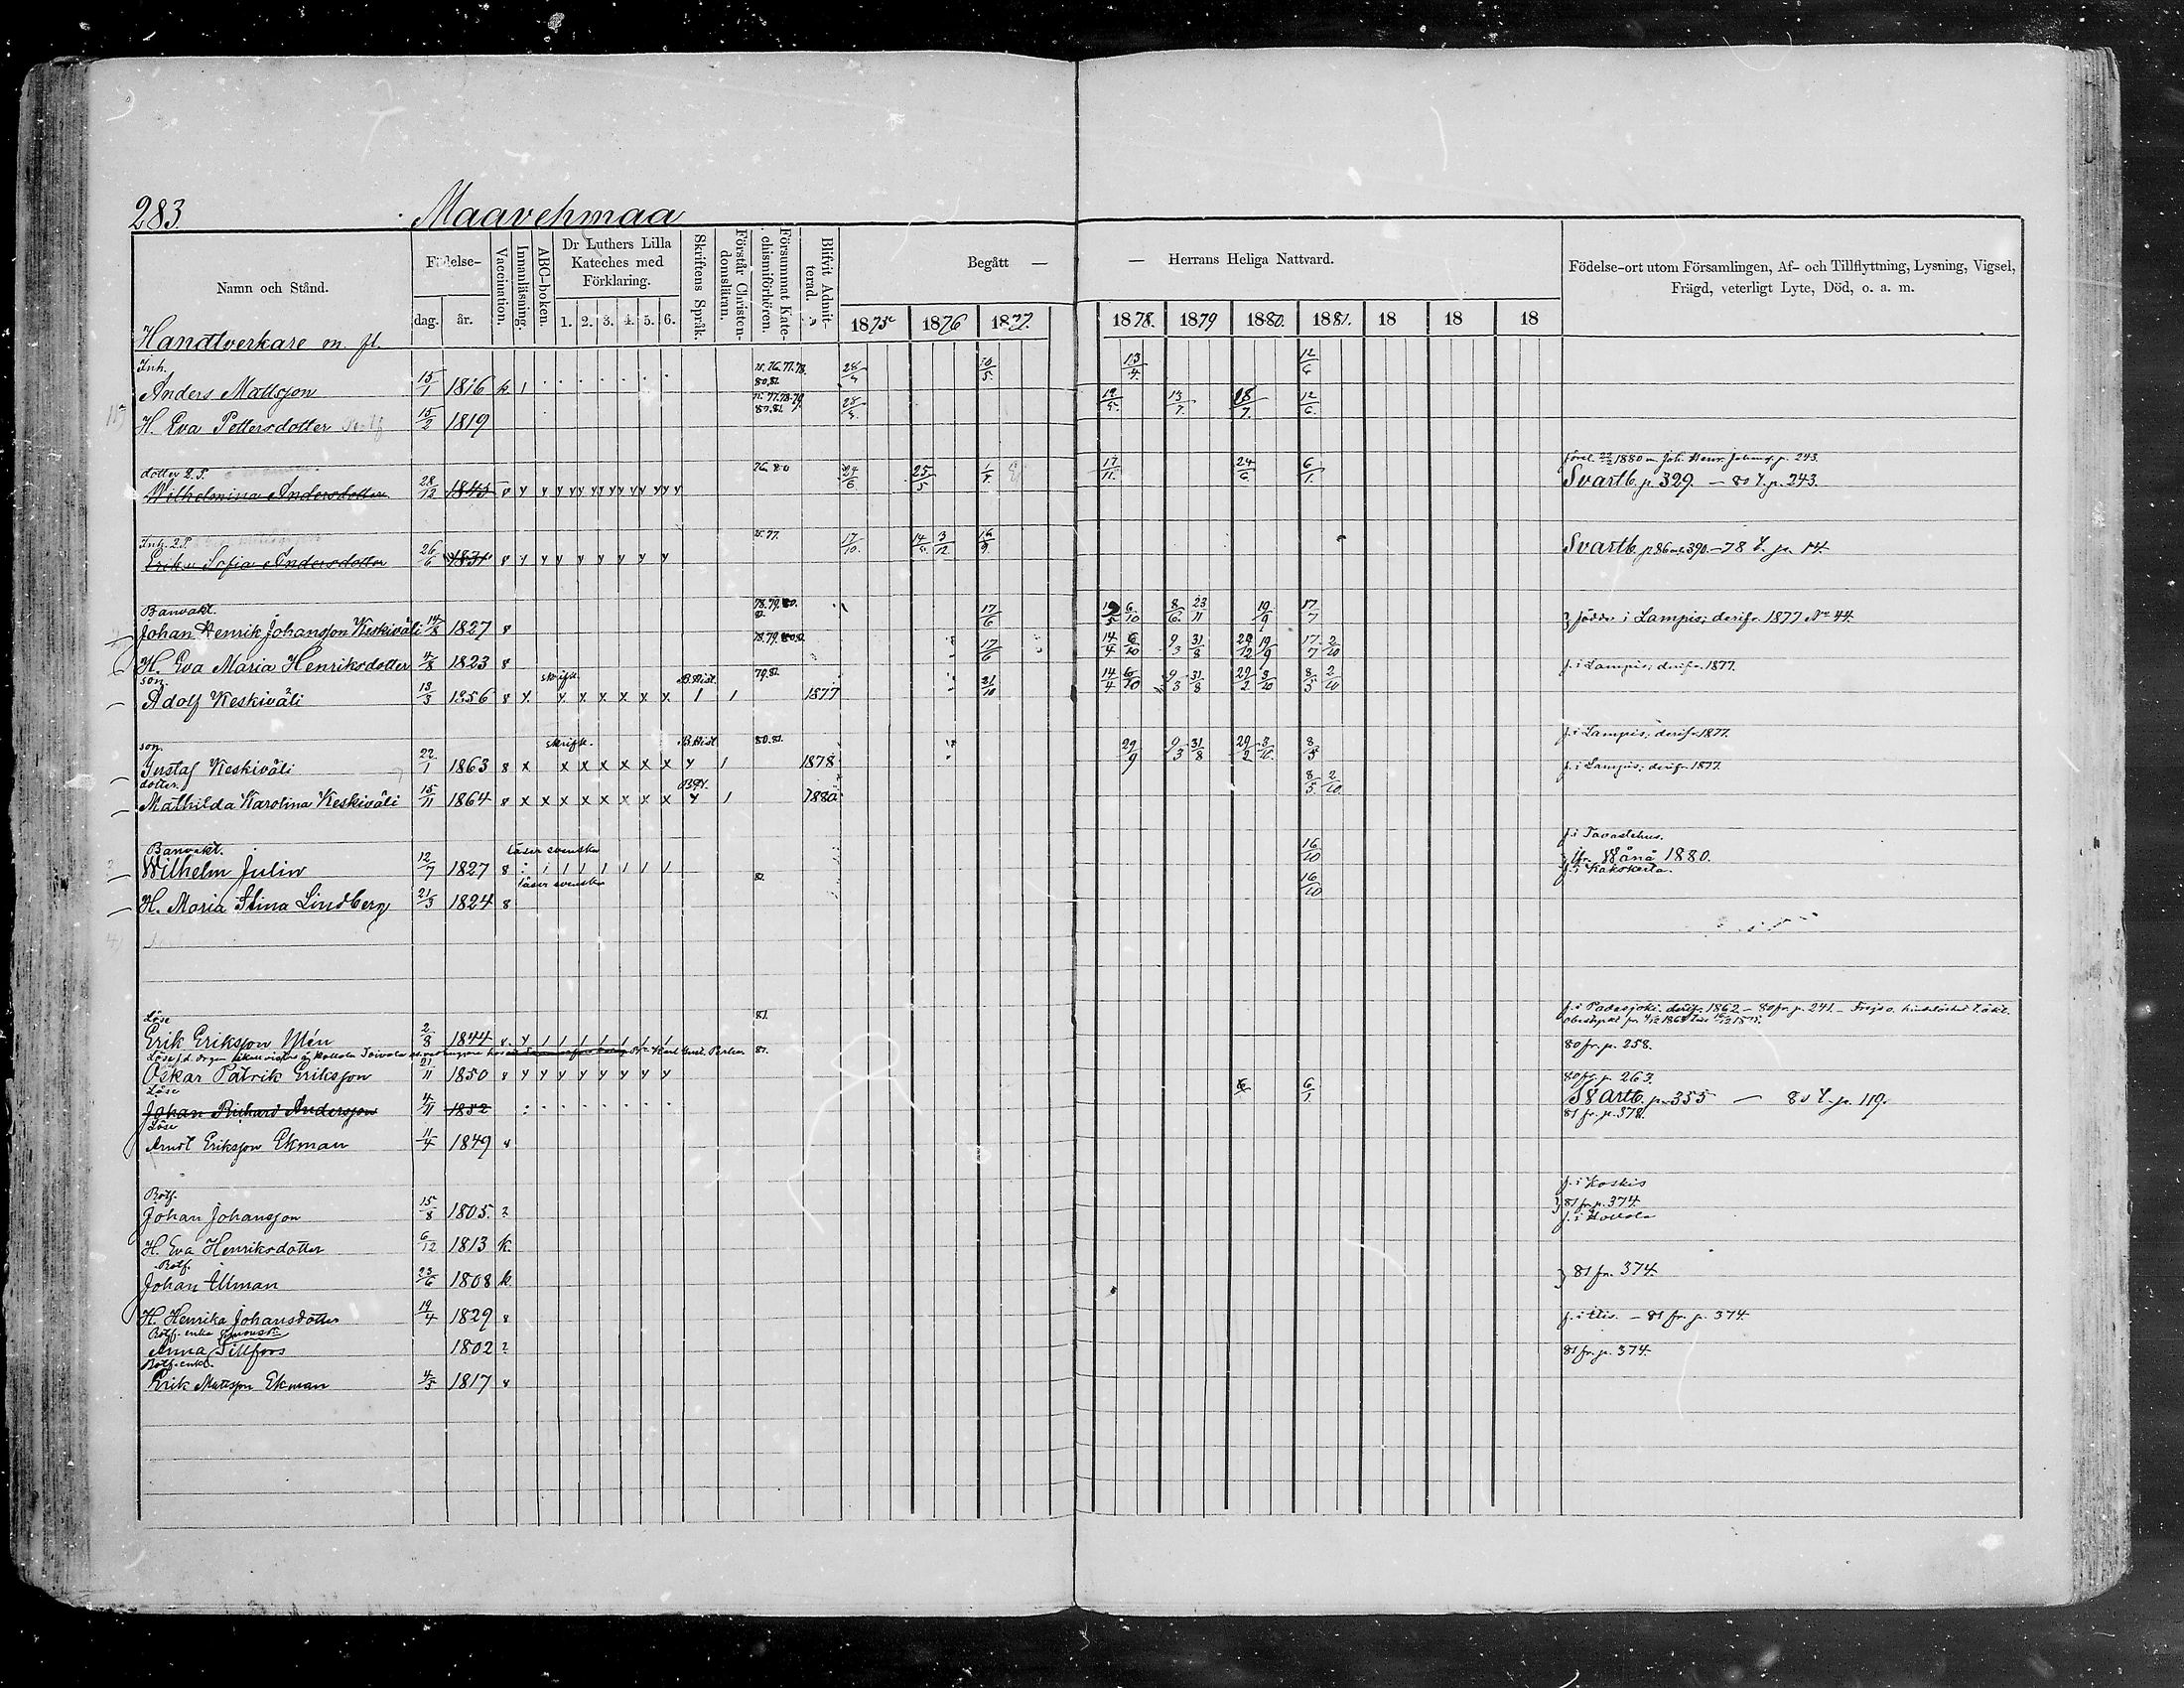 283. Maavehmaa
Namn och Stånd. Födelse- dag. år. Vaccination. Innanläsning. ABC-boken. Dr Luthers Lilla Kateches med Förklaring. 1. 2. 3. 4. 5. 6. Skriftens Språk. Förstår Christendomsläran. Försummat Katechismiförhören. Blifvit Admitterad. Begått — — Herrans Heliga Nattvard. Födelse-ort utom Församlingen, Af- och Tillflyttning, Lysning, Vigsel, Frägd, veterligt Lyte, Död, o. a. m.
1875 1876 1877. 1878. 1879 1880. 1881. 18 18 18
Handtverkare m. fl.
Inh.
Anders Mattsson 15/1 1816 k. 1 75.76.77.78. 80.81. 13/4. 12/6
H. Eva Pettersdotter 15/2 1819 13/7. 18/7. 12/6.
dotter 2.S. 76.80 förel. 22/2 1880 m. Joh. Henr. Johanss. p. 243.
Wilhelmina Andersdotter 28/12 1845 v y y y yy yy yy yy yy y 24/6 25/5 1/7. 17/11. 24/6. 6/1. Svartb. p. 329. — 80 t. p. 243.
Inh. 2.S. 75.77.
Erika Sofia Andersdotter 26/6 1831 v y y y y y y y y 17/10. 14/5. 3/12 16/9. Svartb. p 86 o. 390. — 78 t. p. 14.
Banvakt. 78.79.80.
Johan Henrik Johansson Keskiväli 14/8 1827 v 17/6 6/10 8/6. 23/11 19/9 17/7 födde i Lampis; derifr. 1877 No 44.
H. Eva Maria Henriksdotter 4/8 1823 v 17/6 14/4 6/10 9/3 31/8 29/12 19/9 17/7 2/10 f. i Lampis; derifr. 1877.
son. skrift. B.Hist. 79.81.
Adolf Keskiväli 13/3 1856 v x. x x x x x x 1 1 1877 21/10 14/4 6/10 9/3 31/8 29/2 3/10 8/5 2/10
son. skrift. B.Hist 80.81. f. i Lampis; derifr. 1877.
Gustaf Keskiväli 22/1 1863 v x x x x x x x y 1 1878 29/9 9/3 31/8 29/2 3/10. 8/5
dotter. f. i Lampis; derifr. 1877.
Mathilda Karolina Keskiväli 15/11 1864 v x x x x x x x x y 1 1880 8/5 2/10
Banvakt. läser svenska f. i Tavastehus.
Wilhelm Julin 12/7 1827 v 1 1 1 1 1 1 1 16/10 fr. Wånå 1880.
läser svenska f. i Kakskerta.
H. Maria Stina Lindberg 21/3 1824 v 81. 16/10
Löse 81. f. i Padasjoki. derifr. 1862 — 80 fr. p. 241.
Erik Eriksson Ylén 2/3 1844 v. y 1 1 1 1 1 1 1
80 fr. p. 258.
Oskar Patrik Eriksson 21/11 1850 v y y y y y y y y
Löse 80 fr. p. 263.
Johan Richard Andersson 4/11 1852 6/1. Svartb. p. 355 — 80 t. p. 119.
Löse 81 fr. p. 378.
Arndt Eriksson Ekman 11/4 1849 v
Rotf. f. i Koskis
Johan Johansson 15/8 1805. ? 81 fr. p. 374.
f. i Hollola
H. Eva Henriksdotter 6/12 1813 k.
Rotf.
Johan Allman 23/6 1808 k. 81 fr. 374.
H. Henrika Johansdotter 19/4 1829 v f. i Itis. — 81 fr. p. 374.
Rotf. enka
Anna Tillfors 1802 ? 81 fr. p. 374.
Rotf. enkl.
Erik Mattsson Ekman 4/5 1817 v